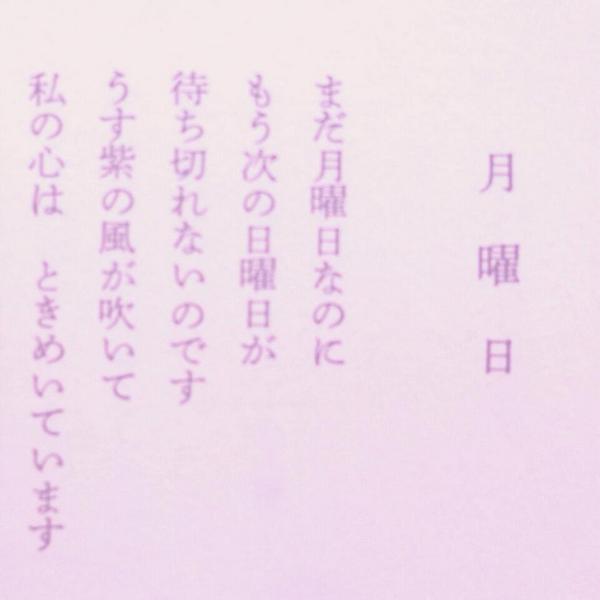 月曜日
まだ月曜日なのに
もう次の日曜日が
待ち切れないのです
うす紫の風が吹いて
私の心は　ときめいています